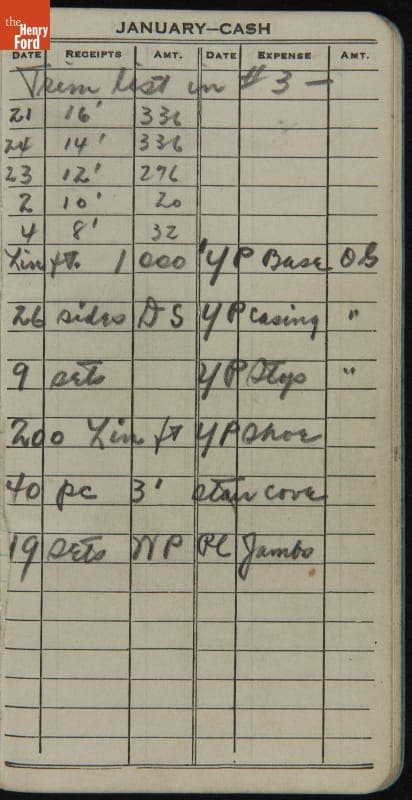 the
Henry
Ford
JANUARY—CASH
DATE RECEIPTS AMT. DATE EXPENSE AMT.
Trim list in #3 —
21 16' 336
24 14' 336
23 12' 276
2 10' 20
4 8' 32
Lin ft. 1000 'YP Base OG
26 sides DS YP casing "
9 sets YP Stops "
200 Lin ft YP Shoe
40 pc 3' stair cove
19 sets WP Pl Jambs